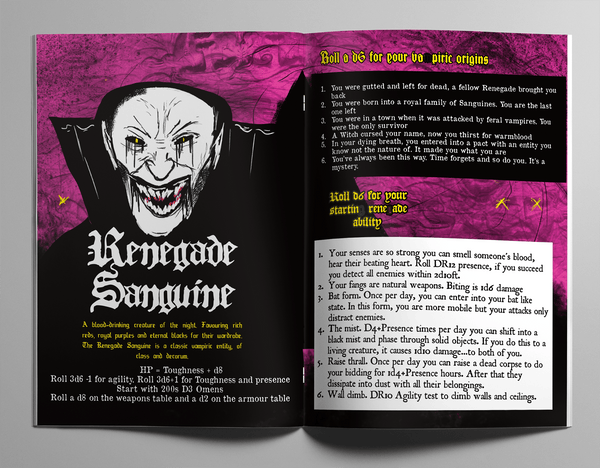 Renegade
Sanguine
A blood-drinking creature of the night. Favouring rich
reds, royal purples and eternal blacks for their wardrobe.
The Renegade Sanguine is a classic vampiric entity, of
class and decorum.
HP = Toughness + d8
Roll 3d6 -1 for agility, Roll 3d6+1 for Toughness and presence
Start with 200s D3 Omens
Roll a d8 on the weapons table and a d2 on the armour table
Roll a d6 for your va piric origins
1. You were gutted and left for dead, a fellow Renegade brought you
back
2. You were born into a royal family of Sanguines. You are the last
one left
3. You were in a town when it was attacked by feral vampires. You
were the only survivor
4. A Witch cursed your name, now you thirst for warmblood
5. In your dying breath, you entered into a pact with an entity you
know not the nature of. It made you what you are
6. You've always been this way. Time forgets and so do you. It's a
mystery.
Roll d6 for your
startin rene ade
ability
1. Your senses are so strong you can smell someone's blood,
hear their beating heart. Roll DR12 presence, if you succeed
you detect all enemies within 2d10ft.
2. Your fangs are natural weapons. Biting is 1d6 damage
3. Bat form. Once per day, you can enter into your bat like
state. In this form, you are more mobile but your attacks only
distract enemies.
4. The mist. D4+Presence times per day you can shift into a
black mist and phase through solid objects. If you do this to a
living creature, it causes 1d10 damage...to both of you.
5. Raise thrall. Once per day you can raise a dead corpse to do
your bidding for 1d4+Presence hours. After that they
dissipate into dust with all their belongings.
6. Wall climb. DR10 Agility test to climb walls and ceilings.